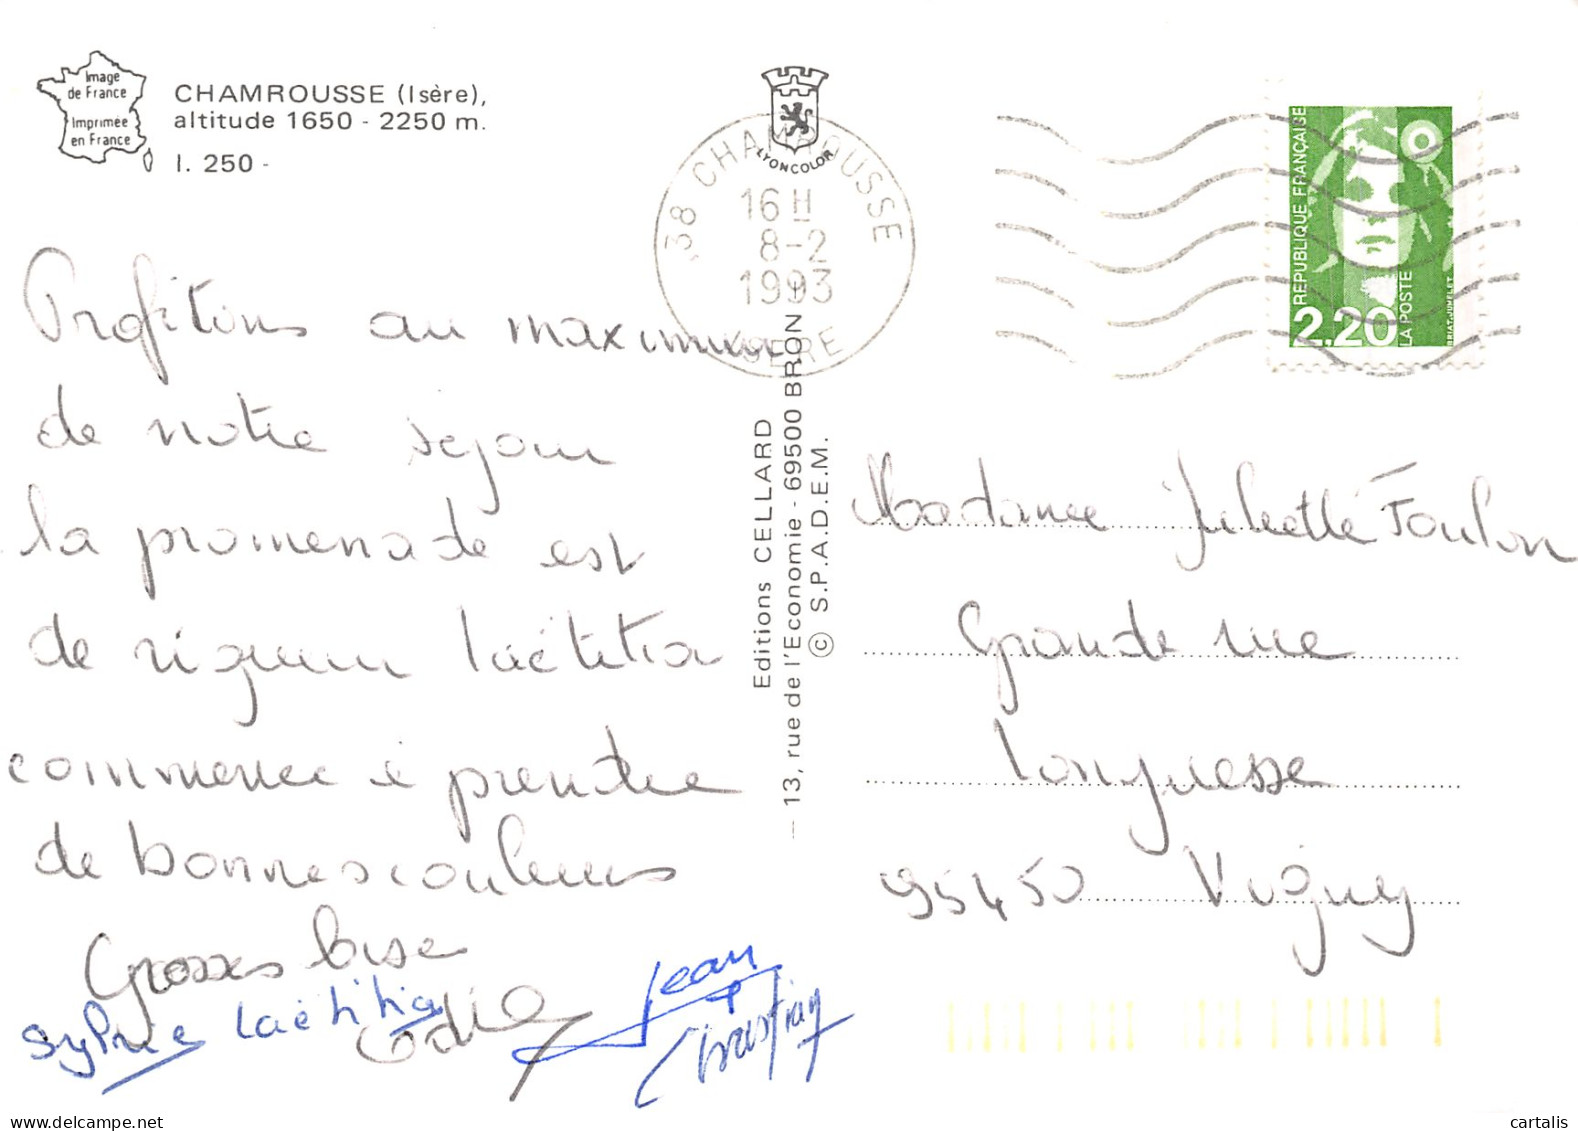 Image
de France
Imprimée
en France
CHAMROUSSE (Isère),
altitude 1650 - 2250 m.
I. 250 -
LYONCOLOR
38 CHAMROUSSE
16 H
8-2
1993
ISERE
RÉPUBLIQUE FRANÇAISE
2,20
LA POSTE
BRIAT-JUMELET
Profitons au maximum
de notre sejour
la promenade est
de rigueur laëtitia
commence à prendre
de bonnes couleurs
Grosses bise
Sylvie laëtitia Odile Jean
Christian
Editions CELLARD
— 13, rue de l'Economie - 69500 BRON —
© S.P.A.D.E.M.
Madame Juliette Foulon
Grande rue
Longuesse
95450 Vigny
www.delcampe.net
cartalis